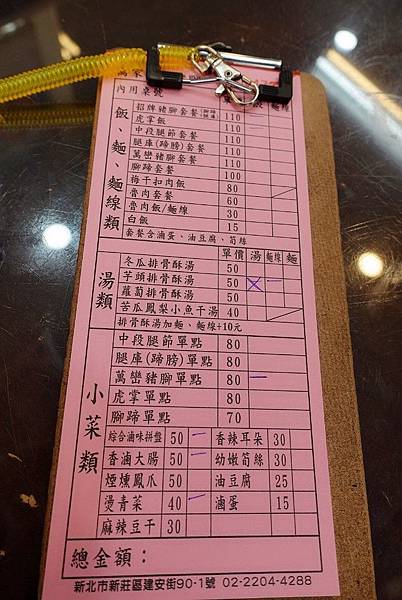 萬家
內用桌號
飯、麵、麵線類
招牌豬腳套餐 110
虎掌飯 110
中段腿節套餐 110
腿庫(蹄膀)套餐 110
萬巒豬腳套餐 110
腳蹄套餐 100
梅干扣肉飯 80
魯肉套餐 60
魯肉飯/麵線 30
白飯 15
套餐含滷蛋、油豆腐、筍絲
湯類
單價 湯 麵線 麵
冬瓜排骨酥湯 50
芋頭排骨酥湯 50
蘿蔔排骨酥湯 50
苦瓜鳳梨小魚干湯 40
排骨酥湯加麵、麵線+10元
小菜類
中段腿節單點 80
腿庫(蹄膀)單點 80
萬巒豬腳單點 80
虎掌單點 80
腳蹄單點 70
綜合滷味拼盤 50 香辣耳朵 30
香滷大腸 50 幼嫩筍絲 30
煙燻鳳爪 50 油豆腐 25
燙青菜 40 滷蛋 15
麻辣豆干 30
總金額：
新北市新莊區建安街90-1號 02-2204-4288